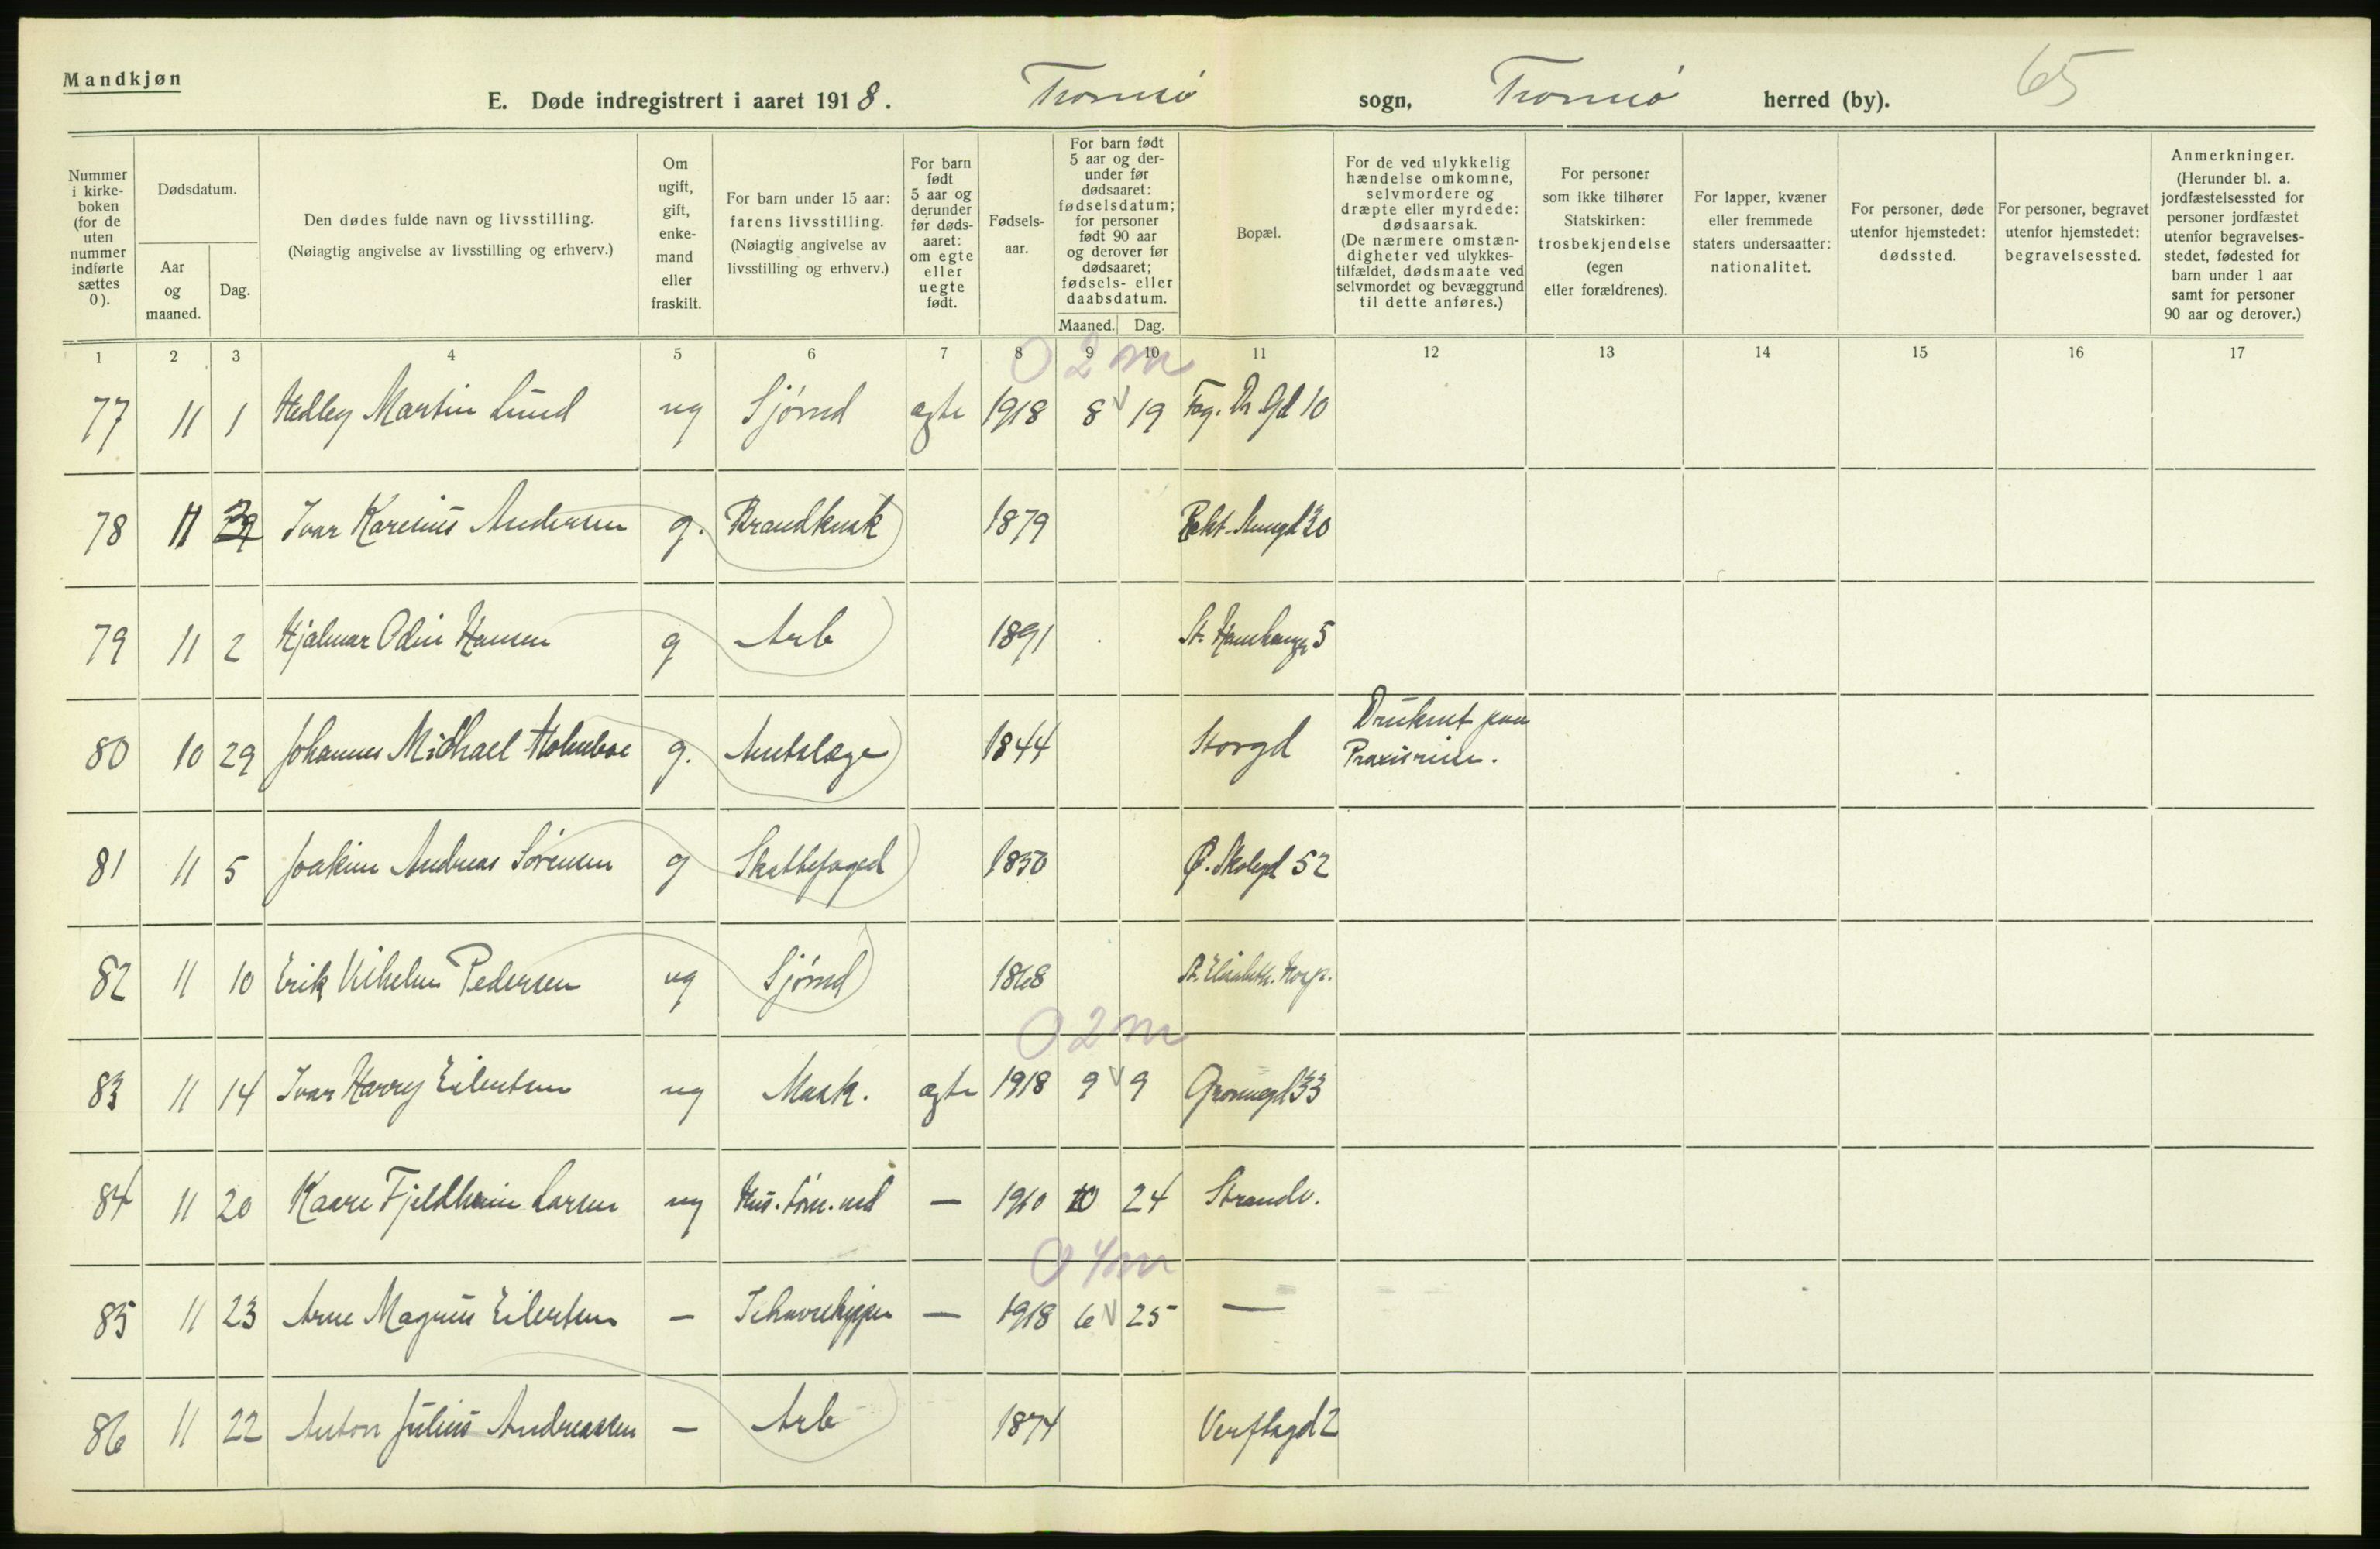 Mandkjøn
E. Døde indregistrert i aaret 1918. Tromsø sogn, Tromsø herred (by). 65
Nummer i kirke-boken (for de uten nummer indførte sættes 0).
Dødsdatum.
Aar og maaned.
Dag.
Den dødes fulde navn og livsstilling.
(Nøiagtig angivelse av livsstilling og erhverv.)
Om ugift, gift, enke-mand eller fraskilt.
For barn under 15 aar: farens livsstilling.
(Nøiagtig angivelse av livsstilling og erhverv.)
For barn født 5 aar og derunder før døds-aaret: om egte eller uegte født.
Fødsels-aar.
For barn født 5 aar og der-under før dødsaaret: fødselsdatum; for personer født 90 aar og derover før dødsaaret; fødsels- eller daabsdatum.
Maaned. Dag.
Bopæl.
For de ved ulykkelig hændelse omkomne, selvmordere og dræpte eller myrdede: dødsaarsak.
(De nærmere omstæn-digheter ved ulykkes-tilfældet, dødsmaate ved selvmordet og bevæggrund til dette anføres.)
For personer som ikke tilhører Statskirken: trosbekjendelse (egen eller forældrenes).
For lapper, kvæner eller fremmede staters undersaatter: nationalitet.
For personer, døde utenfor hjemstedet: dødssted.
For personer, begravet utenfor hjemstedet: begravelsessted.
Anmerkninger.
(Herunder bl. a. jordfæstelsessted for personer jordfæstet utenfor begravelses-stedet, fødested for barn under 1 aar samt for personer 90 aar og derover.)
1 2 3 4 5 6 7 8 9 10 11 12 13 14 15 16 17
0 2 m
77 11 1 Hedley Martin Lund ug Sjømd ægte 1918 8 19 10
78 11 Ivar Karenius Andersen g. Brandkusk 1879 30
79 11 2 Hjalmar Odin Hansen g Arb 1891 St. Hanshaugen 5
80 10 29 Johannes Michael Holmboe g. Amtslæge 1844 Storgd Druknet paa
Praxisreise.
81 11 5 Joakim Andreas Sørensen g Skattefoged 1850 Ø. Skolegd 52
82 11 10 Erik Vilhelm Pedersen ug Sjømd 1868 St. Elisabeth. Hosp.
0 2 m
83 11 14 Ivar Harry Eilertsen ug Mask. ægte 1918 9 9 Grønnegd 33
84 11 20 Kaare Fjeldheim Larsen ug Hus. tøm. md — 1910 10 24 Strandv.
0 4 m
85 11 23 Arne Magnus Eilertsen — — 1918 6 25 —
86 11 22 Anton Julius Andreassen — Arb 1874 Verftsgd 2